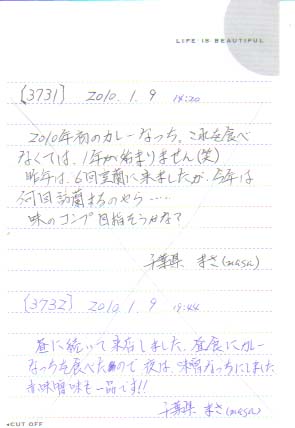 LIFE IS BEAUTIFUL
[3731] 2010.1.9 14:20
2010年初のカレーなっち。これを食べ
なくては、1年が始まりません(笑)
昨年は、6回室蘭に来ましたが、今年は
何回訪蘭するのやら……
味のコンプ目指そうかな?
千葉県 まさ(masa)
[3732] 2010.1.9 19:44
昼に続いて来店しました。昼食にカレー
なっちを食べたので夜は、味噌なっちにしました
辛味噌味も一品です!!
千葉県 まさ(masa)
◂CUT OFF